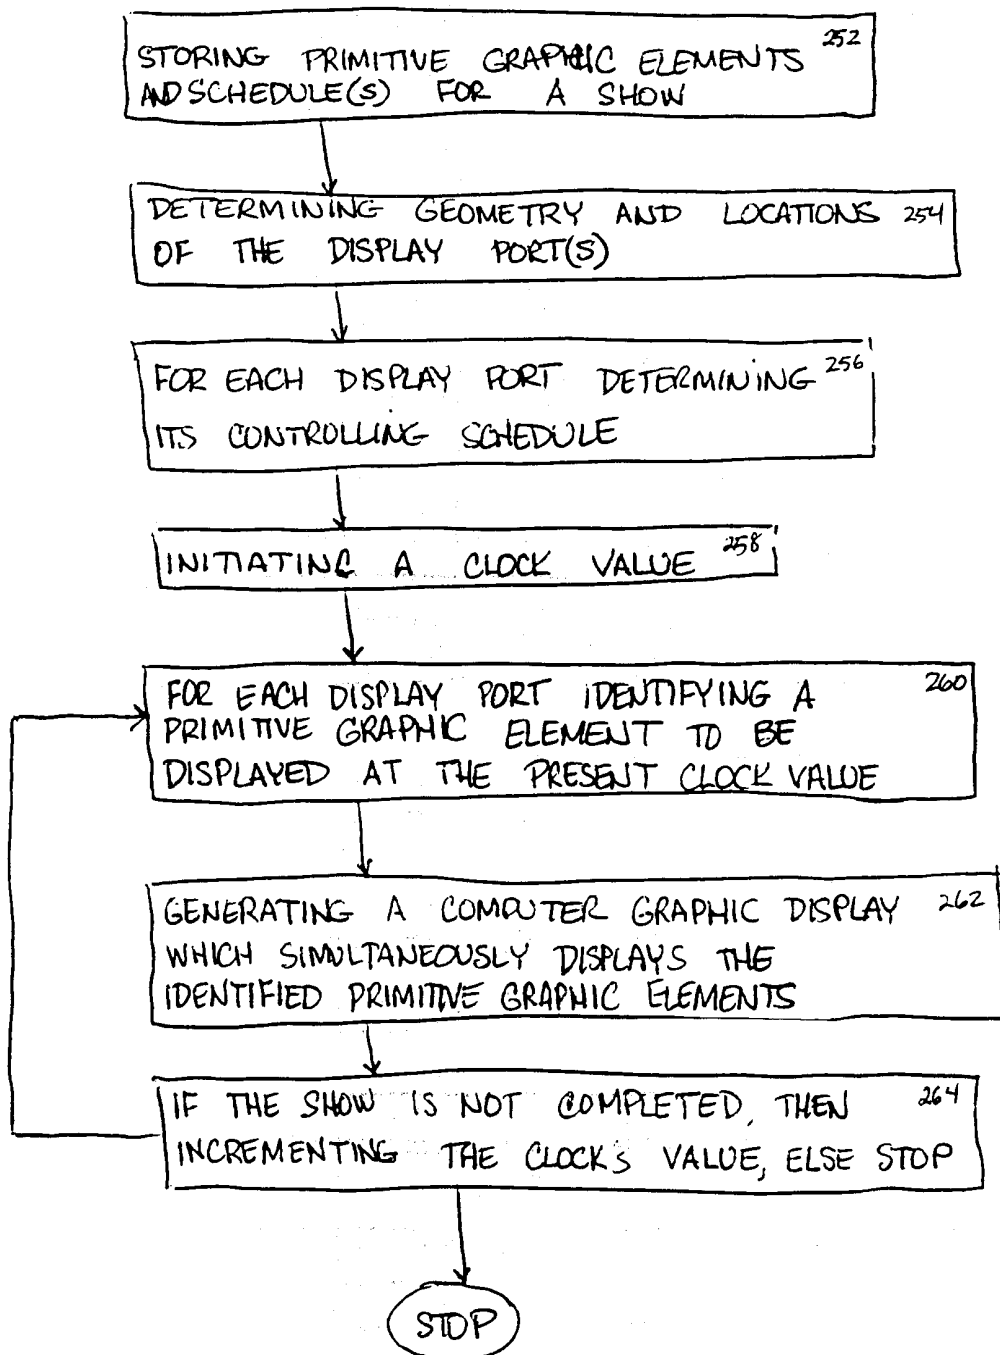 STORING PRIMITIVE GRAPHIC ELEMENTS 252
AND SCHEDULE(S) FOR A SHOW
DETERMINING GEOMETRY AND LOCATIONS 254
OF THE DISPLAY PORT(S)
FOR EACH DISPLAY PORT DETERMINING 256
ITS CONTROLLING SCHEDULE
INITIATING A CLOCK VALUE 258
FOR EACH DISPLAY PORT IDENTIFYING A 260
PRIMITIVE GRAPHIC ELEMENT TO BE
DISPLAYED AT THE PRESENT CLOCK VALUE
GENERATING A COMPUTER GRAPHIC DISPLAY 262
WHICH SIMULTANEOUSLY DISPLAYS THE
IDENTIFIED PRIMITIVE GRAPHIC ELEMENTS
IF THE SHOW IS NOT COMPLETED, THEN 264
INCREMENTING THE CLOCKS VALUE, ELSE STOP
STOP